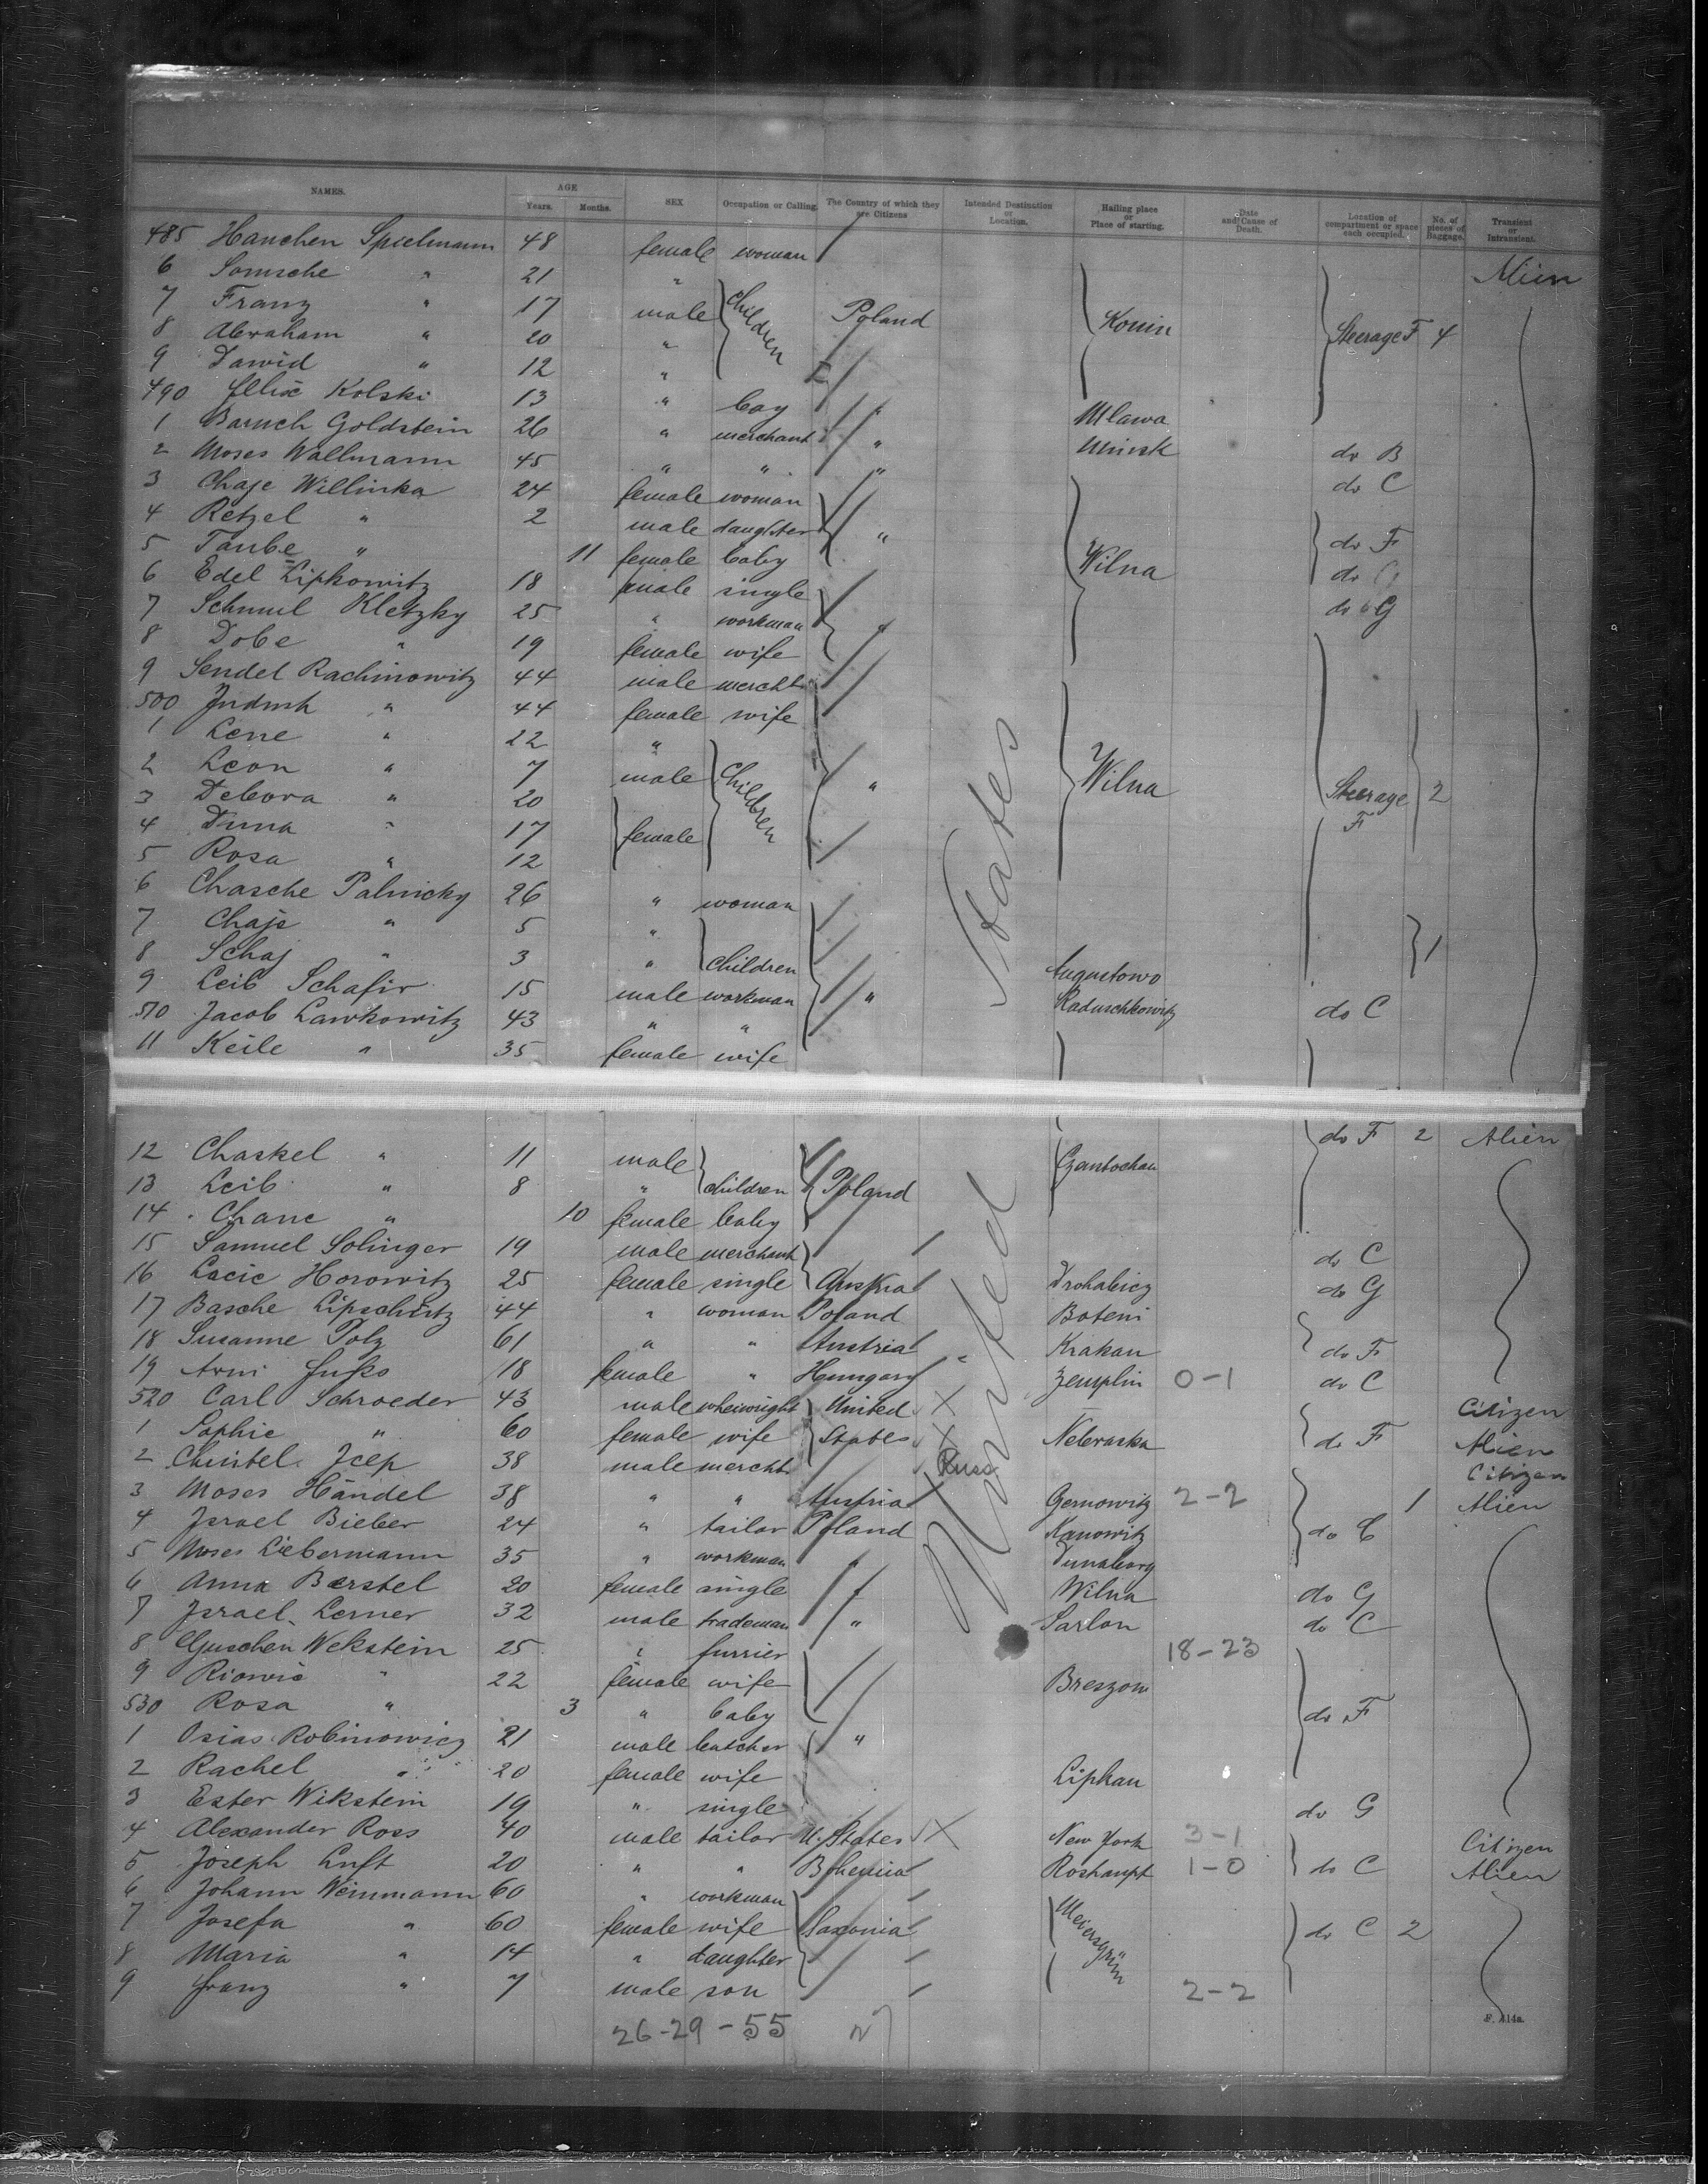 NAMES. AGE Years. Months. SEX Occupation or Calling. The Country of which they are Citizens Intended Destination or Location. Hailing place or Place of starting. Date and Cause of Death. Location of compartment or space each occupied. No. of pieces of Baggage. Transient or Intransient.
485 Hanchen Spielmann 48 female woman Alien
6 Somsche " 21 "
7 Franz " 17 male children Poland Konin Steerage F 4
8 Abraham " 20 "
9 Dawid " 12 "
490 Felix Kolski 13 " boy " Mlawa
1 Baruch Goldstein 26 " merchant " Minsk do B
2 Moses Wallmann 45 " " " do C
3 Chaje Willinka 24 female woman
4 Retzel " 2 male daughter " do F
5 Taube " 11 female baby Wilna do G
6 Edel Lipkowitz 18 female single do G
7 Schmul Kletzky 25 " workman "
8 Dobe " 19 female wife
9 Sendel Rachmowitz 44 male mercht
500 Judmh " 44 female wife
1 Lene " 22 "
2 Leon " 7 male Children " Wilna Steerage F 2
3 Debora " 20
4 Duna " 17 female
5 Rosa " 12
6 Chasche Palnicky 26 " woman
7 Chaje " 5 " 1
8 Schaj " 3 " children Augustowo
9 Leib Schafir 15 male workman " Raduschkowitz
510 Jacob Lawkowitz 43 " " do C
11 Keile " 35 female wife
12 Chaskel " 11 male Czenstochau do F 2 Alien
13 Leib " 8 " children Poland
14 Chane " 10 female baby
15 Samuel Solinger 19 male merchant do C
16 Lacie Horowitz 25 female single Austria Drohabicz do G
17 Basche Lipschütz 44 " woman Poland Boteni
18 Susanne Polz 61 " " Austria Krakau do F
19 Arni Jusko 18 female " Hungary Zemplin 0-1 do C
520 Carl Schroeder 43 male wheiwright United Citizen
1 Sophie " 60 female wife States Nebraska do F Alien
2 Christel Jeep 38 male mercht Russ Citizen
3 Moses Händel 38 " " Austria Gernowitz 2-2 1 Alien
4 Israel Bieber 24 " tailor Poland Kanowitz do C
5 Moses Liebermann 35 " workman " Dunaburg
6 Anna Berstel 20 female single " Wilna do G
7 Israel Lerner 32 male trademan " Sarlon do C
8 Guschen Wekstein 25 " furrier 18-23
9 Riowie " 22 female wife Breszow
530 Rosa " 3 " baby do F
1 Osias Robinowicz 21 male butcher "
2 Rachel " 20 female wife Lipkau
3 Ester Wikstein 19 " single do G
4 Alexander Ross 40 male tailor U. States New York 3-1 Citizen
5 Joseph Luft 20 " " Bohemia Roshaupt 1-0 do C Alien
6 Johann Weinmann 60 " workman
7 Josefa " 60 female wife Saxonia Meiersgrün do C 2
8 Maria " 14 " daughter
9 Franz " 7 male son 2-2
United States
26-29-55
F. A14a.